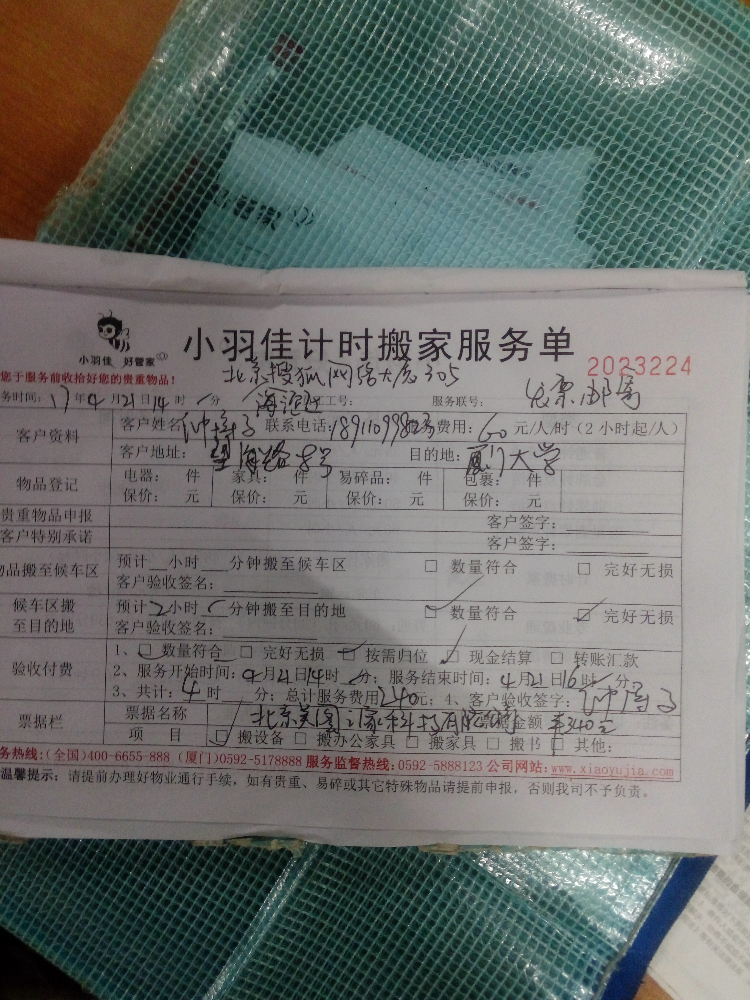 小羽佳 好管家
小羽佳计时搬家服务单
2023224
您于服务前收拾好您的贵重物品!
北京搜狐网络大厦305
务时间: 17年4月21日14时 分 工号: 服务联号: 发票邮寄
客户资料 客户姓名 联系电话: 费用: 60元/人/时(2小时起/人)
客户地址: 望海路 号 目的地: 厦门大学
物品登记 电器: 件 家具: 件 易碎品: 件 包裹: 件
保价: 元 保价: 元 保价: 元 保价: 元
贵重物品申报 客户签字:
客户特别承诺 客户签字:
物品搬至候车区 预计 小时 分钟搬至候车区 □ 数量符合 □ 完好无损
客户验收签名:
候车区搬至目的地 预计2小时 分钟搬至目的地 □ 数量符合 □ 完好无损
客户验收签名:
验收付费 1、□ 数量符合 □ 完好无损 □ 按需归位 □ 现金结算 □ 转账汇款
2、服务开始时间: 4月21日14时 分; 服务结束时间: 4月21日16时 分;
3、共计: 4时 分; 总计服务费用240元; 4、客户验收签字:
票据栏 票据名称 北京 金额 ¥340元
项 目 □ 搬设备 □ 搬办公家具 □ 搬家具 □ 搬书 □ 其他:
务热线:(全国)400-6655-888 (厦门)0592-5178888 服务监督热线:0592-5888123 公司网站:www.xiaoyujia.com
温馨提示: 请提前办理好物业通行手续, 如有贵重、易碎或其它特殊物品请提前申报, 否则我司不予负责。